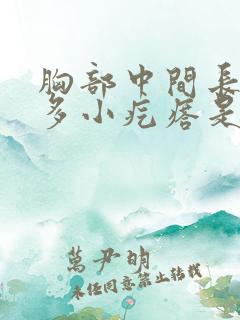 胸部中間長
多小疙瘩是
萬尹明
未經同意禁止轉載